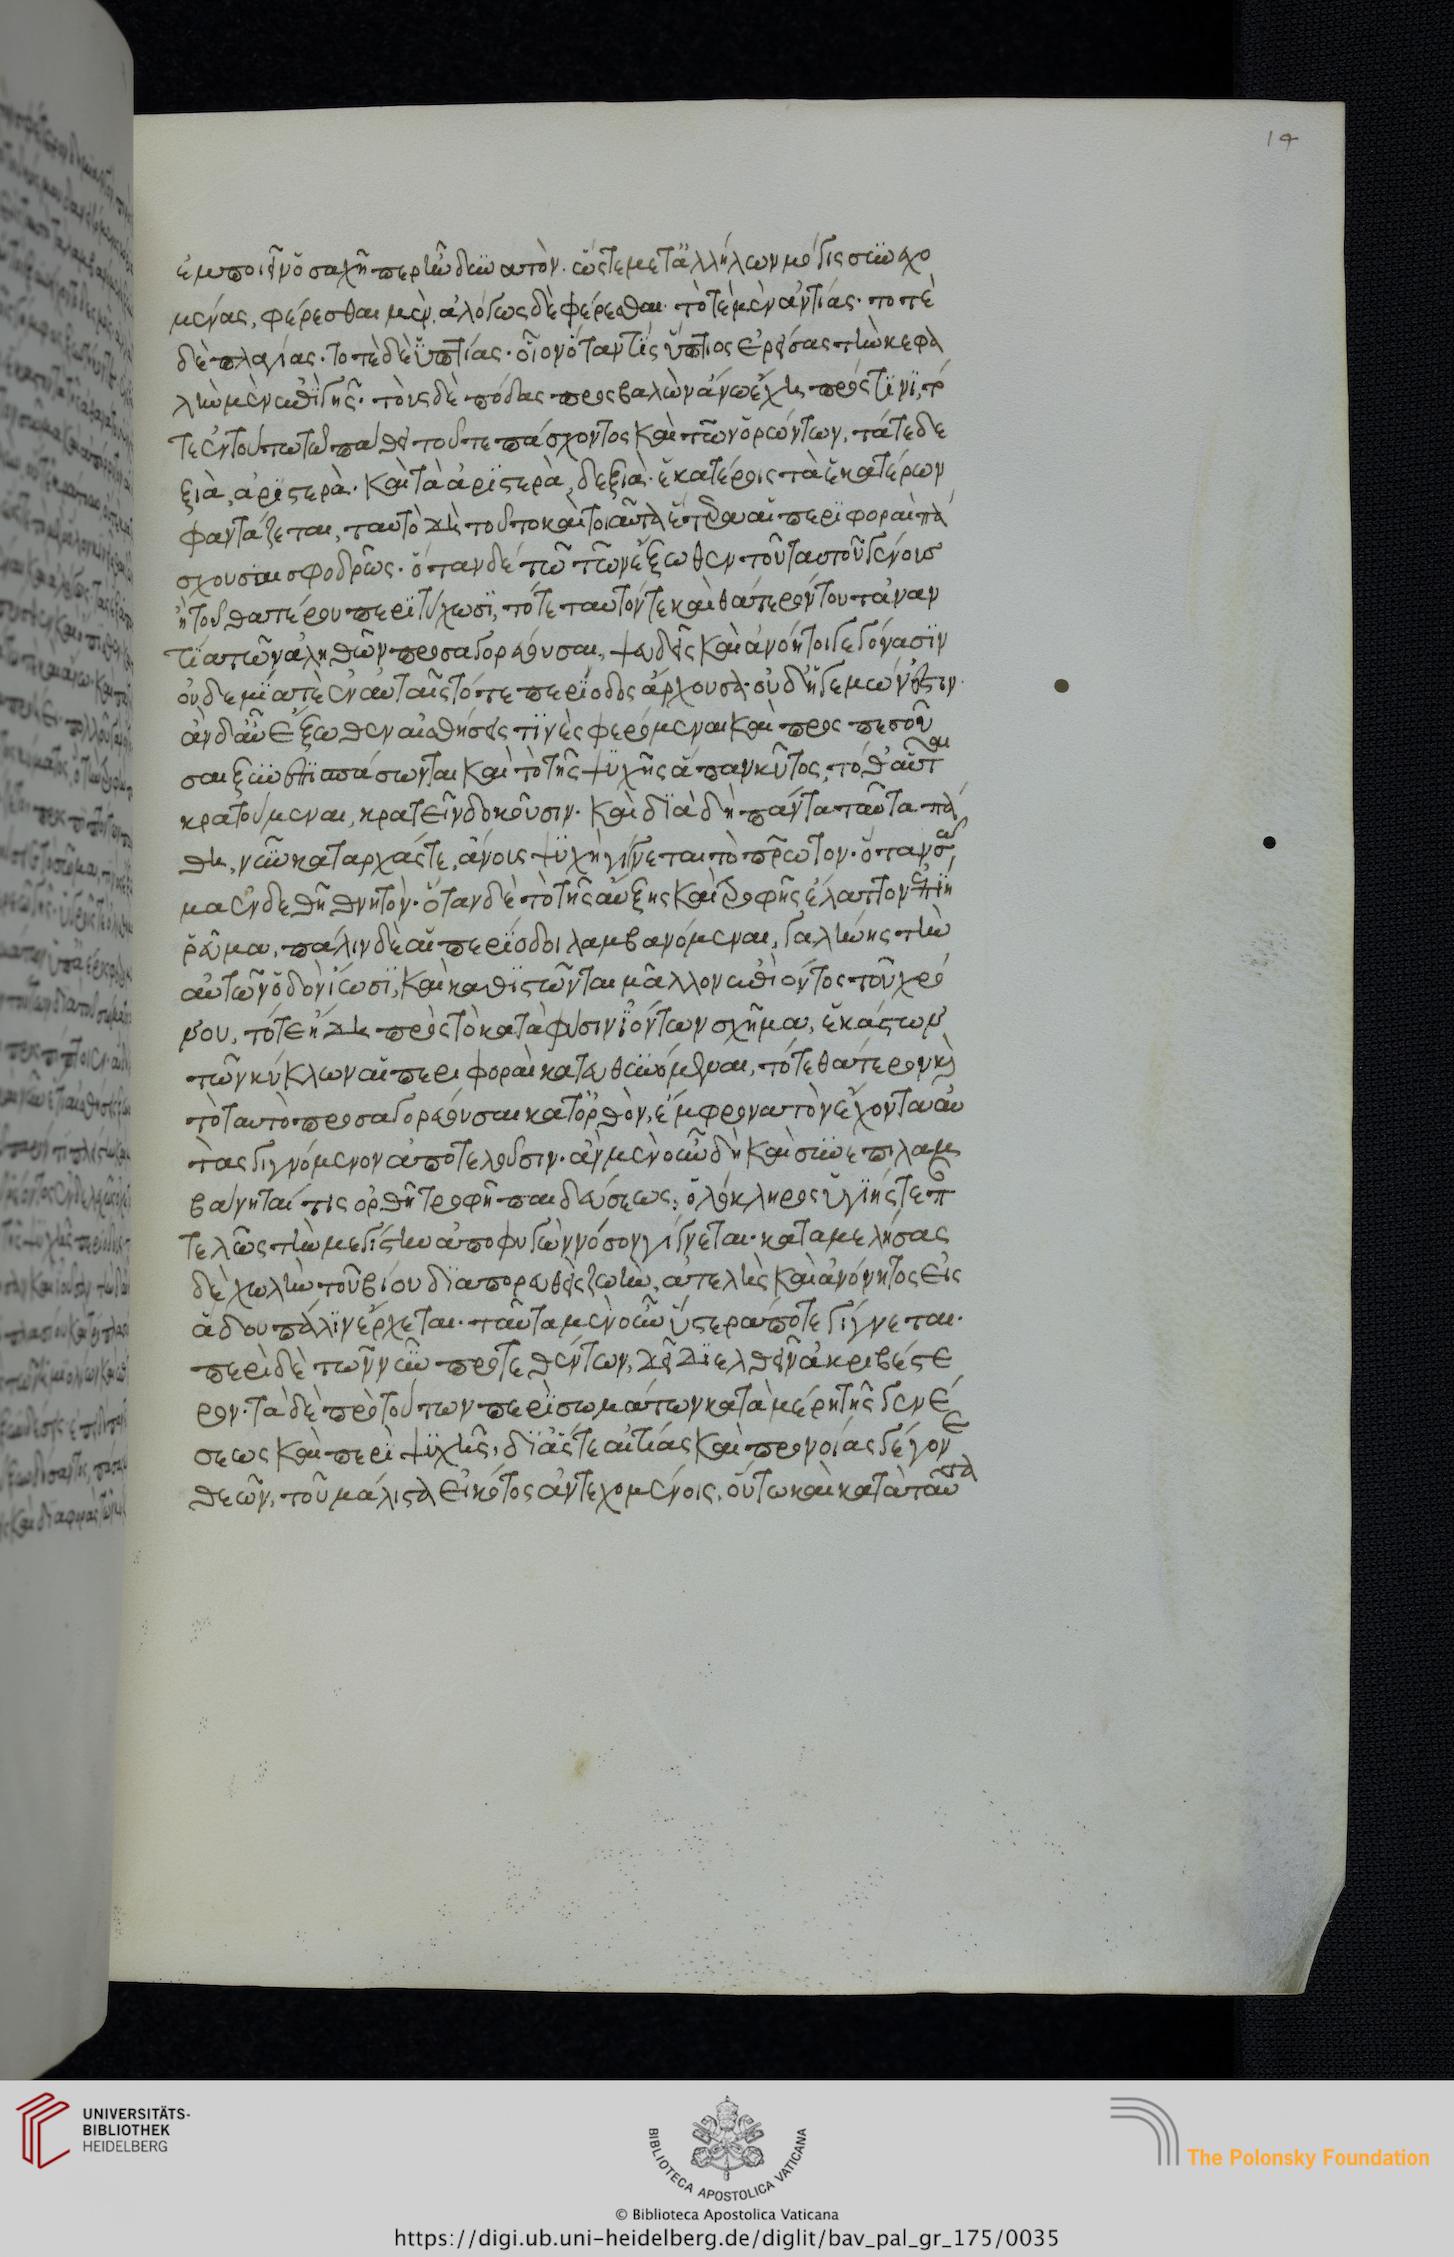 14
ἐμποιεῖν ὁσαχῇ περ ἦν δυνατὸν· ὥστε μετ' ἀλλήλων μόγις συνεχο
μένας, φέρεσθαι μὲν, ἀλόγως δὲ φέρεσθαι· τὸτὲ μὲν ἀντίας· ποτὲ
δὲ πλαγίας· τοτὲ δὲ ὑπτίας· οἷον ὅταν τὶς ὕπτιος ἐρείσας τὴν κεφα
λὴν μὲν ἐπὶ γῆς· τοὺς δὲ πόδας προσβαλὼν ἄνω ἔχῃ πρός τινι, τό
τε ἐν τούτω τῶ πάθει τοῦ τε πάσχοντος καὶ τῶν ὁρώντων, τά τε δε
ξιὰ, ἀριστερὰ· καὶ τὰ ἀριστερὰ, δεξιὰ· ἑκατέροις τὰ ἑκατέρων
φαντάζεται, ταυτὸ δὴ τοῦτο καὶ τοιαῦτα ἕτερα αἱ περιφοραὶ πά
σχουσαι σφοδρῶς· ὅταν δέ τω τῶν ἔξωθεν τοῦ ταυτοῦ γένους
ἢ τοῦ θατέρου περιτύχωσι, τότε ταυτόν τε καὶ θάτερόν του τἀναν
τία τῶν ἀληθῶν προσαγορεύουσαι, ψευδεῖς καὶ ἀνόητοι γεγόνασιν
οὐδεμία τὲ ἐν αὐταῖς τότε περίοδος ἄρχουσα· οὐδ' ἡγεμών ἐστιν·
ἂν δ' αὖ ἔξωθεν αἰσθήσεις τινὲς φερόμεναι καὶ προσπεσοῦ
σαι ξυνεπισπάσωνται καὶ τὸ τῆς ψυχῆς ἅπαν κύτος, τόθ' αὗται
κρατούμεναι, κρατεῖν δοκοῦσιν· καὶ διὰ δὴ πάντα ταῦτα τὰ πά
θη, νῦν κατ' ἀρχάς τε, ἄνους ψυχὴ γίγνεται τὸ πρῶτον· ὅταν εἰς σῶ
μα ἐνδεθῇ θνητὸν· ὅταν δὲ τὸ τῆς αὔξης καὶ τροφῆς ἔλαττον ἐπίῃ
ῥεῦμα, πάλιν δὲ αἱ περίοδοι λαμβανόμεναι, γαλήνης τὴν
αὑτῶν ὁδὸν ἴωσι, καὶ καθιστῶνται μᾶλλον ἐπιόντος τοῦ χρό
νου, τότε ἤδη πρὸς τὸ κατὰ φύσιν ἰόντων σχῆμα, ἑκάστων
τῶν κύκλων αἱ περιφοραὶ κατευθυνόμεναι, τό τε θάτερον καὶ
τὸ ταυτὸ προσαγορεύουσαι κατ' ὀρθὸν, ἔμφρονα τὸν ἔχοντα αὐ
τὰς γιγνόμενον ἀποτελοῦσιν· ἂν μὲν οὖν δὴ καὶ συνεπιλαμ
βάνηταί τις ὀρθὴ τροφὴ παιδεύσεως, ὁλόκληρος ὑγιής τε παν
τελῶς τὴν μεγίστην ἀποφυγὼν νόσον γίγνεται· καταμελήσας
δὲ χωλὴν τοῦ βίου διαπορευθεὶς ζωὴν, ἀτελὴς καὶ ἀνόνητος εἰς
ἅδου πάλιν ἔρχεται· ταῦτα μὲν οὖν ὕστερά ποτε γίγνεται·
περὶ δὲ τῶν νῦν προτεθέντων, δεῖ διελθεῖν ἀκριβέστε
ρον· τὰ δὲ πρὸ τούτων περὶ σωμάτων κατὰ μέρη τῆς γενέ
σεως καὶ περὶ ψυχῆς, δι' ἅς τε αἰτίας καὶ προνοίας γέγονε
θεῶν, τοῦ μάλιστα εἰκότος ἀντεχομένοις, οὕτω καὶ κατὰ ταῦτα
UNIVERSITÄTS-
BIBLIOTHEK
HEIDELBERG
BIBLIOTECA APOSTOLICA VATICANA
The Polonsky Foundation
© Biblioteca Apostolica Vaticana
https://digi.ub.uni-heidelberg.de/diglit/bav_pal_gr_175/0035